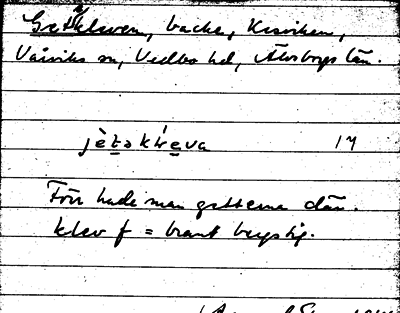 Getekleven, backe, Kesviken,
Vårviks sn, Vedbo hd, Älvsborgs län.
jètəkłeva 17
Förr hade man getterna där.
klev f = brant bergstig.